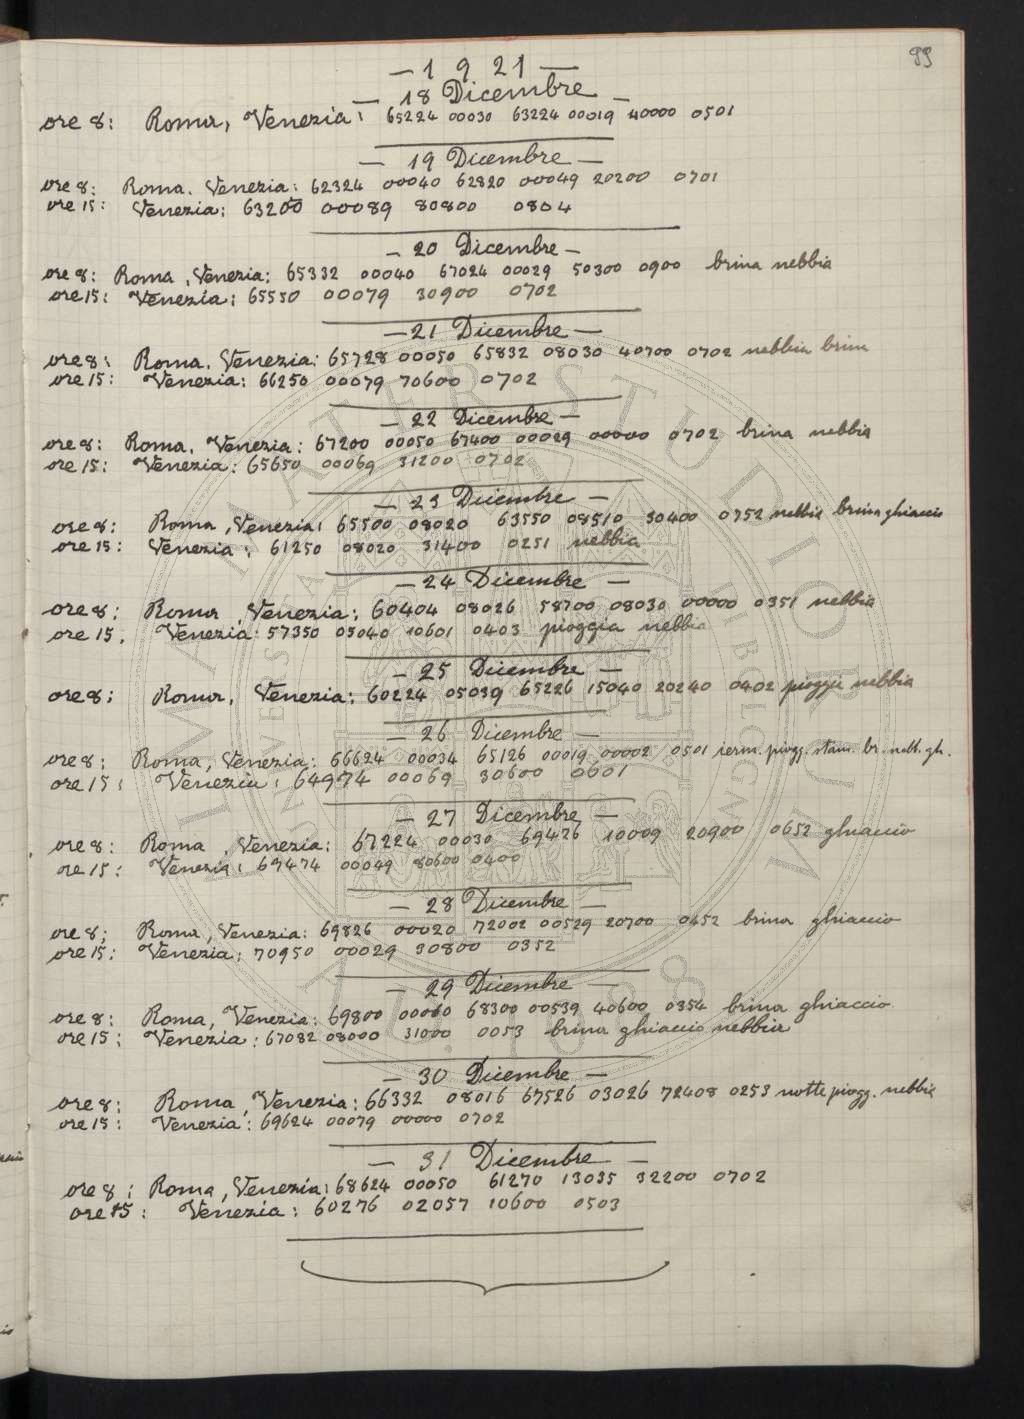 99
— 1921 —
— 18 Dicembre —
ore 8: Roma, Venezia: 65224 00030 63224 00019 40000 0501
— 19 Dicembre —
ore 8: Roma. Venezia: 62324 00040 62820 00049 20200 0701
ore 15: Venezia: 63200 00089 80800 0804
— 20 Dicembre —
ore 8: Roma, Venezia: 65332 00040 67024 00029 50300 0900 brina nebbia
ore 15: Venezia: 65550 00079 30900 0702
— 21 Dicembre —
ore 8: Roma. Venezia: 65728 00050 65832 08030 40700 0702 nebbia brina
ore 15: Venezia: 66250 00079 70600 0702
— 22 Dicembre —
ore 8: Roma. Venezia: 67200 00050 67400 00029 00000 0702 brina nebbia
ore 15: Venezia: 65650 00069 31200 0702
— 23 Dicembre —
ore 8: Roma, Venezia: 65500 08020 63550 08510 30400 0752 nebbia brina ghiaccio
ore 15: Venezia: 61250 08020 31400 0251 nebbia
— 24 Dicembre —
ore 8: Roma, Venezia: 60404 08026 58700 08030 00000 0351 nebbia
ore 15. Venezia: 57350 05040 10601 0403 pioggia nebbia
— 25 Dicembre —
ore 8: Roma, Venezia: 60224 05039 65226 15040 20240 0402 nebbia
— 26 Dicembre —
ore 8: Roma, Venezia: 66624 00034 65126 00019 00002 0501 piogg. stam. br. nebb. gh.
ore 15: Venezia: 64974 00069 30600 0601
— 27 Dicembre —
ore 8: Roma, Venezia: 67224 00030 69426 10009 20900 0652 ghiaccio
ore 15: Venezia: 69474 00049 80600 0400
— 28 Dicembre —
ore 8: Roma, Venezia: 69826 00020 72002 00529 20700 0452 brina ghiaccio
ore 15: Venezia: 70950 00029 30800 0352
— 29 Dicembre —
ore 8: Roma, Venezia: 69800 00060 68300 00539 40600 0354 brina ghiaccio
ore 15: Venezia: 67082 08000 31000 0053 brina ghiaccio nebbia
— 30 Dicembre —
ore 8: Roma, Venezia: 66332 08016 67526 03026 72408 0253 notte piogg. nebbia
ore 15: Venezia: 69624 00079 00000 0702
— 31 Dicembre —
ore 8: Roma, Venezia: 68624 00050 61270 13035 32200 0702
ore 15: Venezia: 60276 02057 10600 0503